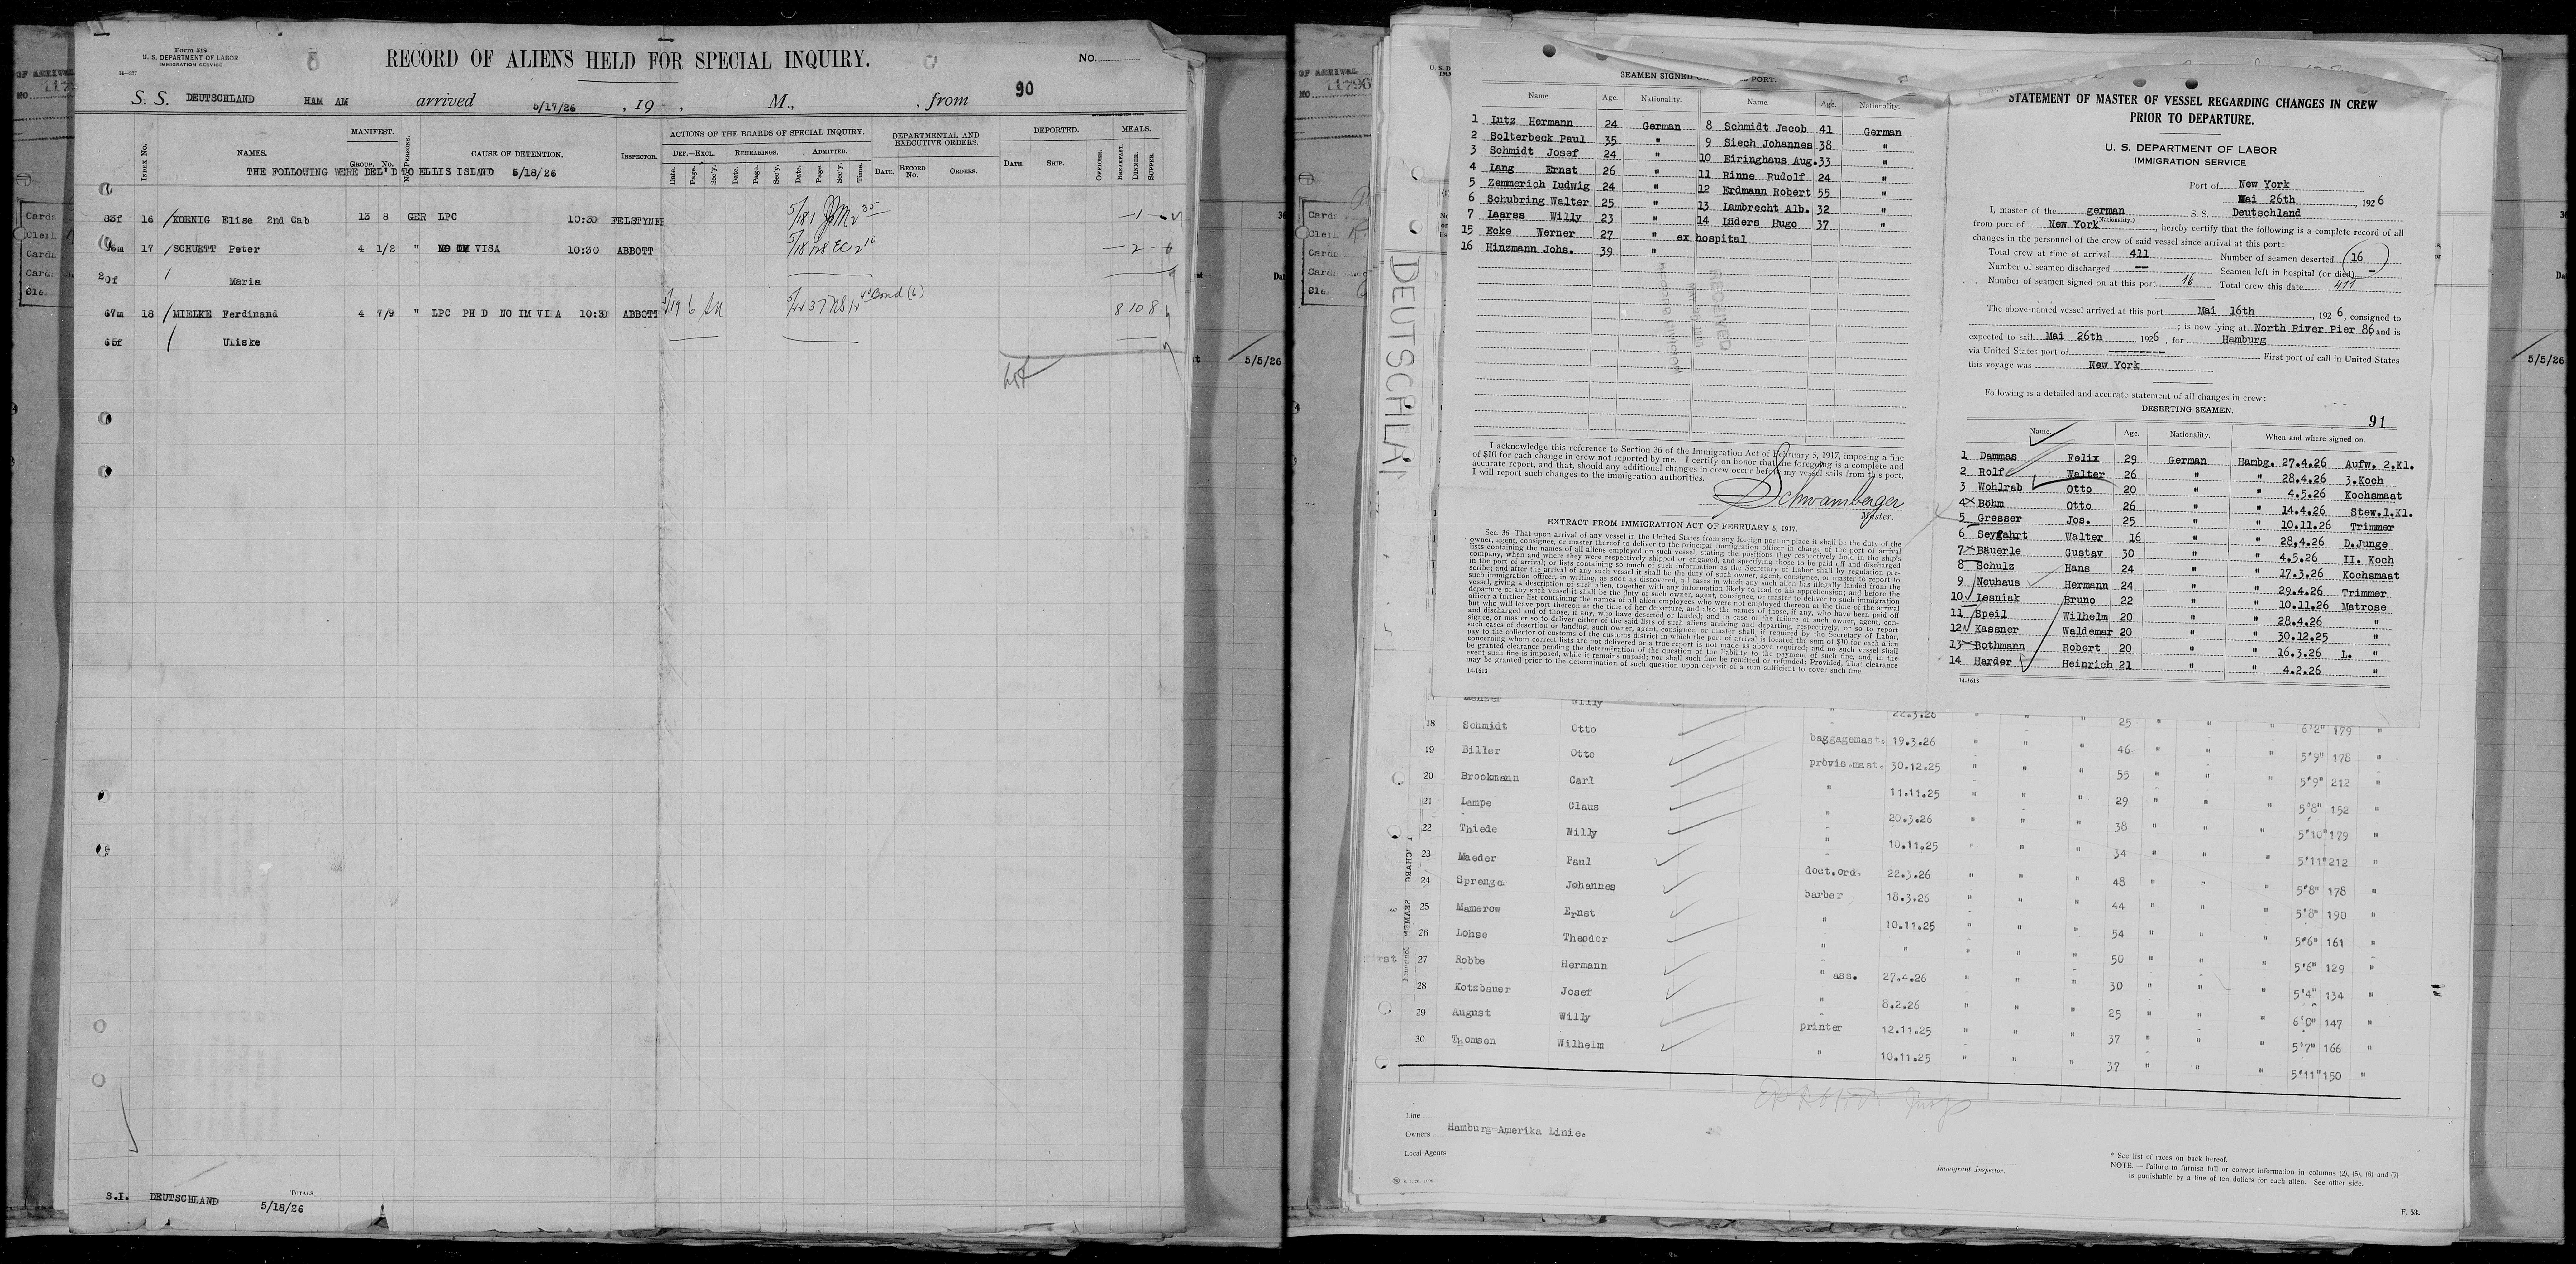 Form 518
U. S. DEPARTMENT OF LABOR
IMMIGRATION SERVICE
14—577
RECORD OF ALIENS HELD FOR SPECIAL INQUIRY.
No.
90
S. S. DEUTSCHLAND HAM AM arrived 5/17/26 , 19 , M., , from
INDEX No. NAMES. MANIFEST. GROUP. No. CAUSE OF DETENTION. INSPECTOR. ACTIONS OF THE BOARDS OF SPECIAL INQUIRY. DEF.—EXCL. REHEARINGS. ADMITTED. Date. Page. Sec'y. Date. Page. Sec'y. Date. Page. Sec'y. Time. DEPARTMENTAL AND EXECUTIVE ORDERS. DATE. RECORD No. ORDERS. DEPORTED. DATE. SHIP. OFFICER. MEALS. BREAKFAST. DINNER. SUPPER.
THE FOLLOWING WERE DEL'D TO ELLIS ISLAND 5/18/26
83f 16 KOENIG Elise 2nd Cab 13 8 GER LPC 10:30
17 SCHUETT Peter 4 1/2 " VISA 10:30 ABBOTT 2
Maria
67m 18 MIELKE Ferdinand 4 7/9 " LPC PH D NO IM VISA 10:30 ABBOTT 8 10 8
65f Uliske
S.I. DEUTSCHLAND TOTALS. 5/18/26
OF ARRIVAL
11796
5/5/26
DEUTSCHLAN
SEAMEN SIGNED PORT.
Name. Age. Nationality. Name. Age. Nationality.
1 Lutz Hermann 24 German 8 Schmidt Jacob 41 German
2 Solterbeck Paul 35 " 9 Siech Johannes 38 "
3 Schmidt Josef 24 " 10 Eiringhaus Aug. 33 "
4 Lang Ernst 26 " 11 Rinne Rudolf 24 "
5 Zemmerich Ludwig 24 " 12 Erdmann Robert 55 "
6 Schubring Walter 25 " 13 Lambrecht Alb. 32 "
7 Laarss Willy 23 " 14 Lüders Hugo 37 "
15 Ecke Werner 27 " ex hospital
16 Hinzmann Johs. 39 "
RECEIVED
RECORD DIVISION
I acknowledge this reference to Section 36 of the Immigration Act of February 5, 1917, imposing a fine
of $10 for each change in crew not reported by me. I certify on honor that the foregoing is a complete and
accurate report, and that, should any additional changes in crew occur before my vessel sails from this port,
I will report such changes to the immigration authorities.
Schwamberger
Master.
EXTRACT FROM IMMIGRATION ACT OF FEBRUARY 5, 1917.
Sec. 36. That upon arrival of any vessel in the United States from any foreign port or place it shall be the duty of the
owner, agent, consignee, or master thereof to deliver to the principal immigration officer in charge of the port of arrival
lists containing the names of all aliens employed on such vessel, stating the positions they respectively hold in the ship's
company, when and where they were respectively shipped or engaged, and specifying those to be paid off and discharged
in the port of arrival; or lists containing so much of such information as the Secretary of Labor shall by regulation pre-
scribe; and after the arrival of any such vessel it shall be the duty of such owner, agent, consignee, or master to report to
such immigration officer, in writing, as soon as discovered, all cases in which any such alien has illegally landed from the
vessel, giving a description of such alien, together with any information likely to lead to his apprehension; and before the
departure of any such vessel it shall be the duty of such owner, agent, consignee, or master to deliver to such immigration
officer a further list containing the names of all alien employees who were not employed thereon at the time of the arrival
but who will leave port thereon at the time of her departure, and also the names of those, if any, who have been paid off
and discharged and of those, if any, who have deserted or landed; and in case of the failure of such owner, agent, con-
signee, or master so to deliver either of the said lists of such aliens arriving and departing, respectively, or so to report
such cases of desertion or landing, such owner, agent, consignee, or master shall, if required by the Secretary of Labor,
pay to the collector of customs of the customs district in which the port of arrival is located the sum of $10 for each alien
concerning whom correct lists are not delivered or a true report is not made as above required; and no such vessel shall
be granted clearance pending the determination of the question of the liability to the payment of such fine, and, in the
event such fine is imposed, while it remains unpaid; nor shall such fine be remitted or refunded: Provided, That clearance
may be granted prior to the determination of such question upon deposit of a sum sufficient to cover such fine.
14-1613
STATEMENT OF MASTER OF VESSEL REGARDING CHANGES IN CREW
PRIOR TO DEPARTURE.
U. S. DEPARTMENT OF LABOR
IMMIGRATION SERVICE
Port of New York
Mai 26th , 1926
I, master of the german S. S. Deutschland
(Nationality.)
from port of New York , hereby certify that the following is a complete record of all
changes in the personnel of the crew of said vessel since arrival at this port:
Total crew at time of arrival 411 Number of seamen deserted 16
Number of seamen discharged — Seamen left in hospital (or died) -
Number of seamen signed on at this port 16 Total crew this date 411
The above-named vessel arrived at this port Mai 16th , 1926, consigned to
; is now lying at North River Pier 86 and is
expected to sail Mai 26th , 1926 , for Hamburg
via United States port of --------- First port of call in United States
this voyage was New York
Following is a detailed and accurate statement of all changes in crew:
DESERTING SEAMEN.
91
Name. Age. Nationality. When and where signed on.
1 Dammas Felix 29 German Hambg. 27.4.26 Aufw. 2.Kl.
2 Rolf Walter 26 " " 28.4.26 3.Koch
3 Wohlrab Otto 20 " " 4.5.26 Kochsmaat
4 Böhm Otto 26 " " 14.4.26 Stew.1.Kl.
5 Gresser Jos. 25 " " 10.11.26 Trimmer
6 Seyfahrt Walter 16 " " 28.4.26 D.Junge
7 Bäuerle Gustav 30 " " 4.5.26 II. Koch
8 Schulz Hans 24 " " 17.3.26 Kochsmaat
9 Neuhaus Hermann 24 " " 29.4.26 Trimmer
10 Lesniak Bruno 22 " " 10.11.26 Matrose
11 Speil Wilhelm 20 " " 28.4.26 "
12 Kassner Waldemar 20 " " 30.12.25 "
13 Bothmann Robert 20 " " 16.3.26 L. "
14 Harder Heinrich 21 " " 4.2.26 "
14-1613
Willy 22.3.26 25 6'2" 179 "
18 Schmidt Otto baggagemast. 19.3.26 " " " 46 " " " 5'9" 178 "
19 Biller Otto provis.mast. 30.12.25 " " " 55 " " " 5'9" 212 "
20 Brockmann Carl " 11.11.25 " " " 29 " " " 5'8" 152 "
21 Lampe Claus " 20.3.26 " " " 38 " " " 5'10" 179 "
22 Thiede Willy " 10.11.25 " " " 34 " " " 5'11" 212 "
23 Maeder Paul doct.ord. 22.3.26 " " " 48 " " " 5'8" 178 "
24 Sprenge Johannes barber 18.3.26 " " " 44 " " " 5'8" 190 "
25 Mamerow Ernst " 10.11.26 " " " 54 " " " 5'6" 161 "
26 Lohse Theodor " " " " " 50 " " " 5'6" 129 "
27 Robbe Hermann " ass. 27.4.26 " " " 30 " " " 5'4" 134 "
28 Kotzbauer Josef " 8.2.26 " " " 25 " " " 6'0" 147 "
29 August Willy printer 12.11.25 " " " 37 " " " 5'7" 166 "
30 Thomsen Wilhelm " 10.11.25 " " " 37 " " " 5'11" 150 "
Line
Owners Hamburg-Amerika Linie.
Local Agents
Immigrant Inspector.
* See list of races on back hereof.
NOTE.—Failure to furnish full or correct information in columns (2), (5), (6) and (7)
is punishable by a fine of ten dollars for each alien. See other side.
F. 53.